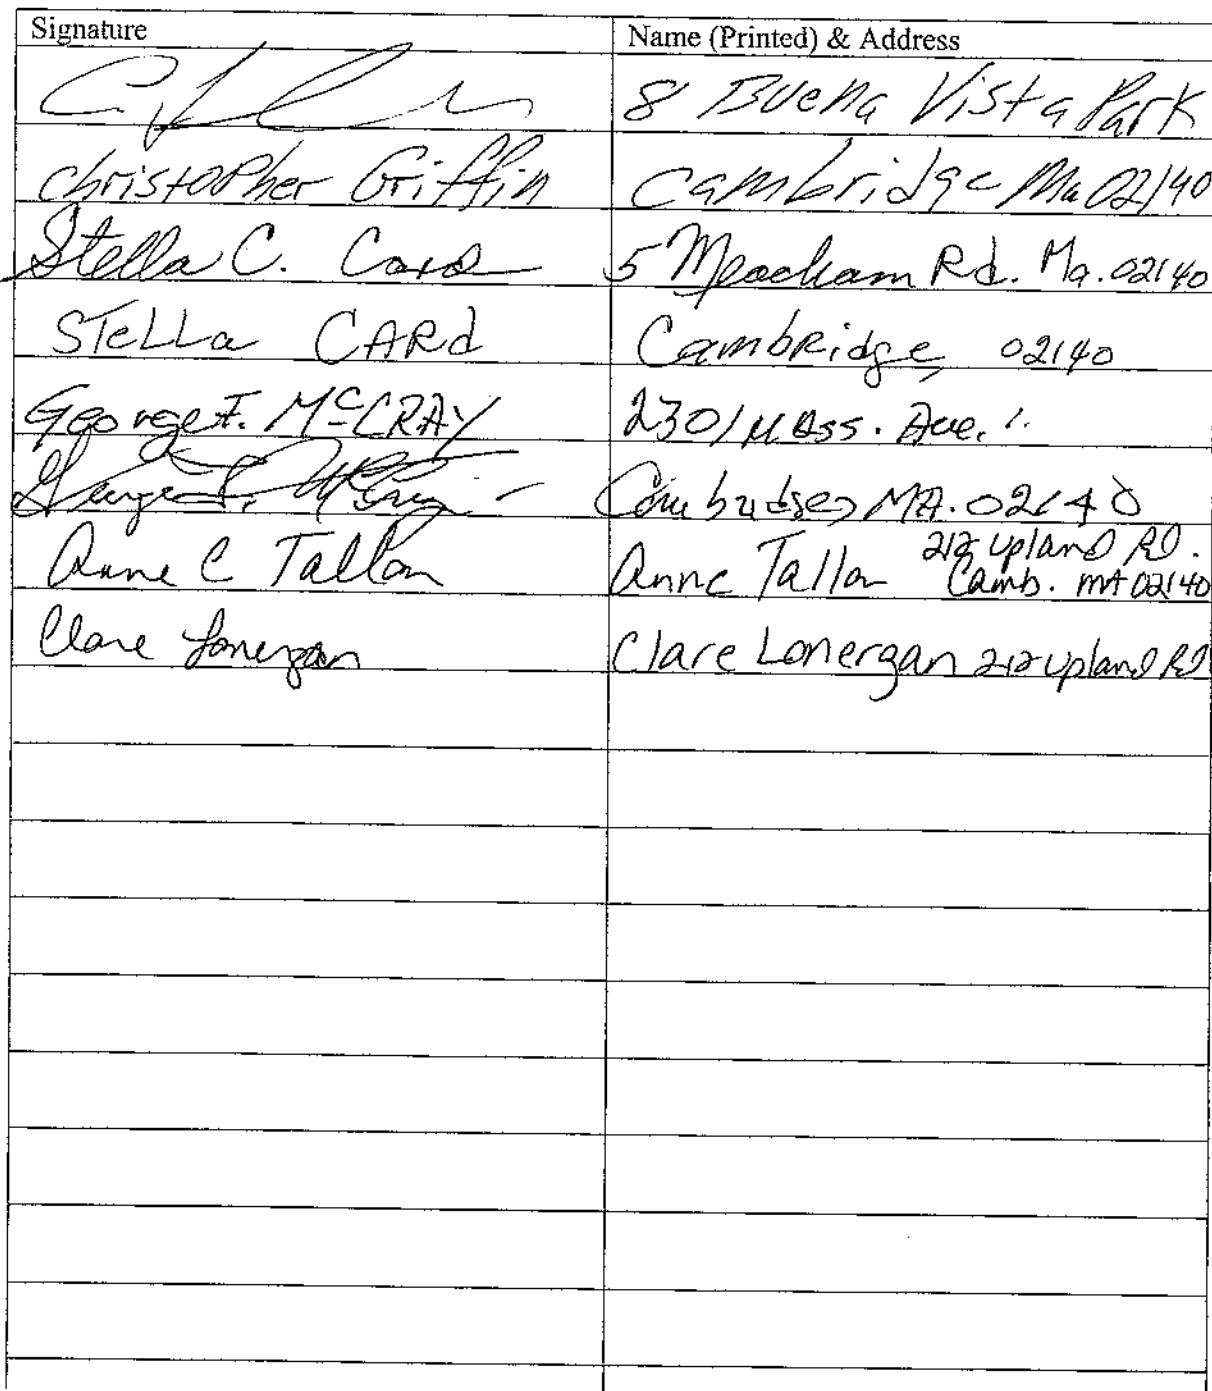 Signature Name (Printed) & Address
8 Buena Vista Park
christopher Griffin Cambridge Ma 02140
Stella C. Card 5 Meacham Rd. Ma. 02140
STeLLa CARd CambRidge, 02140
George F. McCRAY 2301 Mass. Ave.
George F. McCray Cambridge, MA. 02140
Anne C Tallon Anne Tallon 212 Upland RD.
Camb. MA 02140
Clare Lonergan Clare Lonergan 212 Upland RD